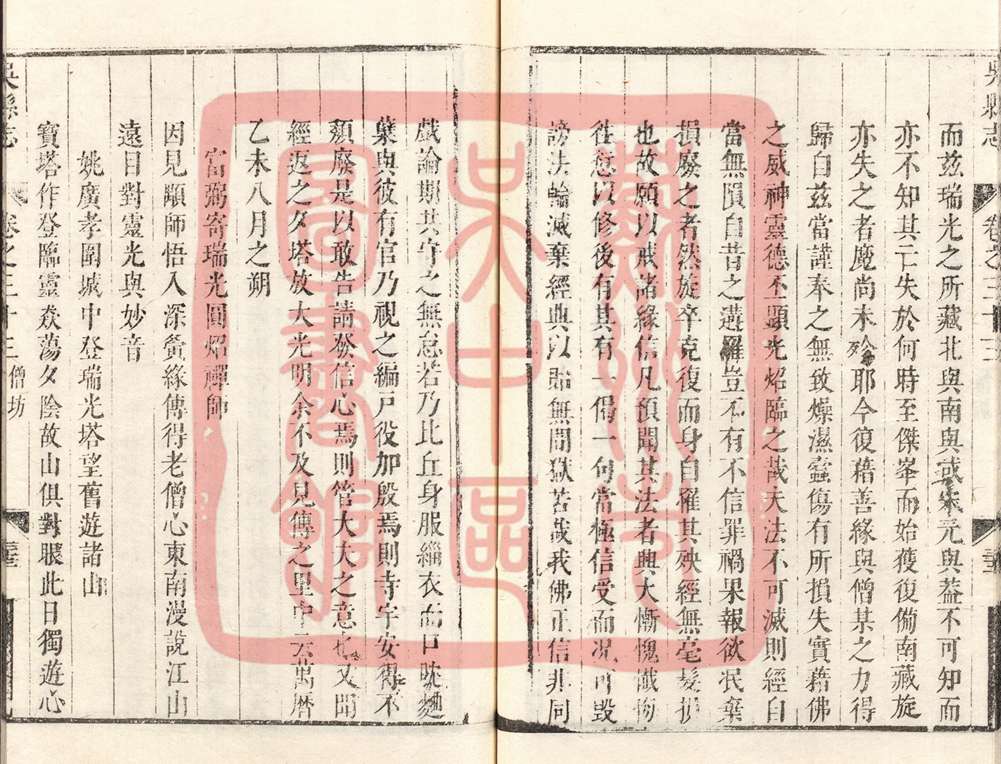 吳縣志
卷之三十三
而兹瑞光之所藏北與南與或朱元與葢不可知而
亦不知其亡失於何時至傑峯而始獲復備南藏旋
亦失之者魔尚未殄耶今復藉善緣與僧某之力得
歸自兹當謹奉之無致燥濕蠹傷有所損失實藉佛
之威神靈德丕顯光炤臨之哉夫法不可滅則經自
當無隕自昔之遘罹豈不有不信罪禍果報欲泯棄
損廢之者然旋卒克復而身自罹其殃經無毫髮損
也故願以戒諸緣信凡預聞其法者興大慚愧懺悔
徃愆以修後有其有一偈一句當極信受而况可毀
謗法輪滅棄經典以貽無間獄苦哉我佛正信非同
戲論期共守之無怠若乃比丘身服緇衣而口眈麯
蘖與彼有官乃視之編戸役加殷焉則寺宇安得不
頽廢是以敢告請發信心焉則管大夫之意也又聞
經返之夕塔放大光明余不及見傳之里中云萬曆
乙未八月之朔
富弼寄瑞光圓炤禪師
因見顒師悟入深夤緣傳得老僧心東南漫說江山
遠日對靈光與妙音
姚廣孝圍城中登瑞光塔望舊遊諸山
寶塔作登臨靈猋蕩夕陰故山俱對眼此日獨遊心
吳縣志
卷之三十三
僧坊
蘇州市
吳中區
圖書館